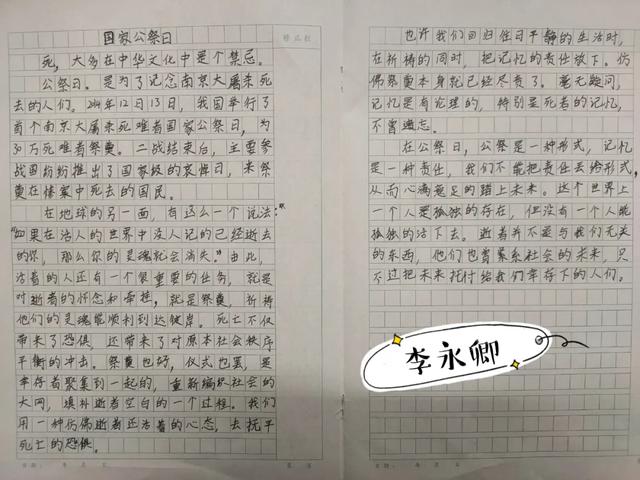 国家公祭日
死，大多在中华文化中是个禁忌。
公祭日。是为了记念南京大屠杀死
去的人们。2014年12月13日，我国举行了
首个南京大屠杀死难者国家公祭日，为
30万死难者祭奠。二战结束后，主要参
战国纷纷推出了国家级的哀悼日，来祭
奠在惨案中死去的国民。
在地球的另一面，有这么一个说法：
“如果在活人的世界中没人记的已经逝去
的你，那么你的灵魂就会消失。”由此，
活着的人还有一个很重要的任务，就是
对逝者的怀念和牵挂，就是祭奠，祈祷
他们的灵魂能顺利到达彼岸。死亡不仅
带来了恐惧，还带来了对原本社会秩序
平衡的冲击。祭奠也好，仪式也罢，是
幸存者聚集到一起的，重新编织社会的
大网，填补逝者空白的一个过程。我们
用一种仿佛逝者还活着的心态，去抚平
死亡的恐惧。
也许我们回归往日平静的生活时，
在祈祷的同时，把记忆的责任放下。仿
佛祭奠本身就已经尽责了。毫无疑问，
记忆是有伦理的，特别是死者的记忆，
不曾遗忘。
在公祭日，公祭是一种形式，记忆
是一种责任，我们不能把责任丢给形式，
从而心满意足的踏上未来。这个世界上
一个人是孤独的存在，但没有一个人能
孤独的活下去。逝者并不是与我们无关
的东西，他们也曾累系社会的未来，只
不过把未来托付给我们幸存下的人们。
李永卿